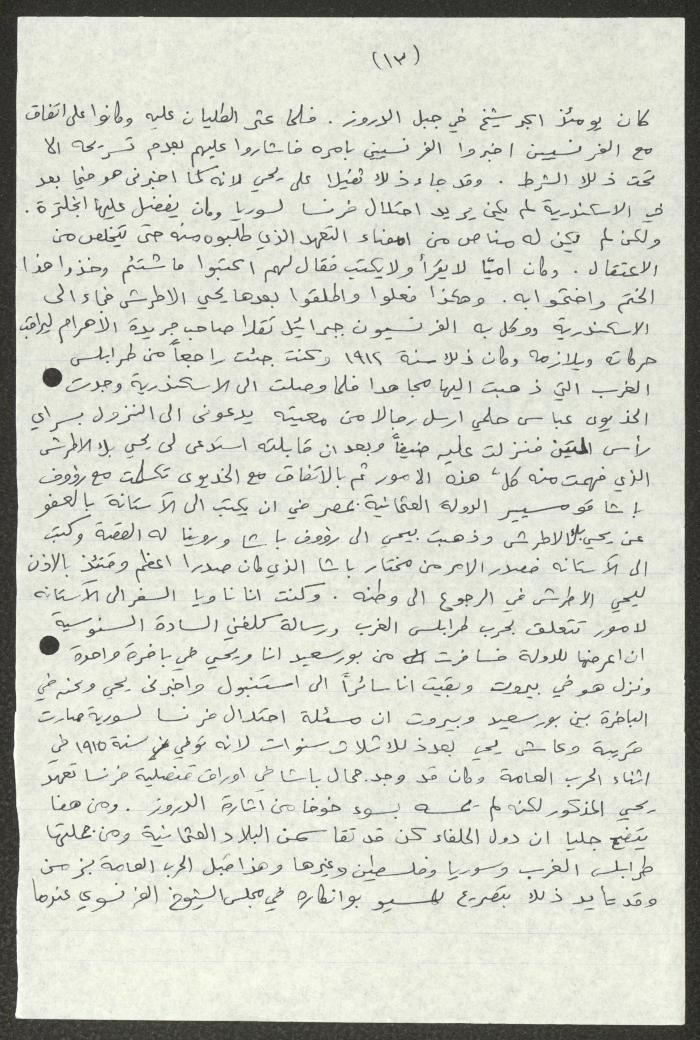 (١٣)
كان يومئذ اكبر شيخ في جبل الدروز . فلما عثر الطليان عليه وكانوا على اتفاق
مع الفرنسيين اخبروا الفرنسيين بامره فاشاروا عليهم بعدم تسريحه الا
تحت ذلك الشرط . وقد جاء ذلك ثقيلا على يحيى لانه كما اخبرنى هو فيما بعد
في الاسكندرية لم يكن يريد احتلال فرنسا لسوريا وكان يفضل عليها انجلترة .
ولكن لم يكن له مناص من امضاء التعهد الذي طلبوه منه حتى يتخلص من
الاعتقال . وكان اميّا لا يقرأ ولا يكتب فقال لهم اكتبوا ما شئتم وخذوا هذا
الختم واختموا به . وهكذا فعلوا واطلقوا بعدها يحيى الاطرش فجاء الى
الاسكندرية ووكل به الفرنسيون جبرائيل تقلا صاحب جريدة الاهرام ليراقب
حركاته ويلازمه وكان ذلك سنة ١٩١٢ وكنت جئت راجعاً من طرابلس
الغرب التي ذهبت اليها مجاهدا فلما وصلت الى الاسكندرية وجدت
الخديوى عباس حلمي ارسل رجالا من معيته يدعونى الى النزول بسراي
رأس التين فنزلت عليه ضيفاً وبعد ان قابلته استدعى لى يحيى بك الاطرش
الذي فهمت منه كل هذه الامور ثم بالاتفاق مع الخديوى تكلمت مع رؤوف
باشا قوميسير الدولة العثمانية بمصر في ان يكتب الى الآستانة بالعفو
عن يحيى بك الاطرش وذهبت بيحيى الى رؤوف باشا وروينا له القصة وكتب
الى الآستانه فصدر الامر من مختار باشا الذي كان صدرا اعظم وقتئذ بالاذن
ليحيى الاطرش في الرجوع الى وطنه . وكنت انا ناويا السفر الى الآستانه
لامور تتعلق بحرب طرابلس الغرب ورسالة كلفني السادة السنوسية
ان اعرضها للدولة فسافرت من بور سعيد انا ويحيى في باخرة واحدة
ونزل هو في بيروت وبقيت انا سائراً الى استنبول واخبرنى يحيى ونحن في
الباخرة بين بور سعيد وبيروت ان مسئلة احتلال فرنسا لسورية صارت
قريبة وعاش يحيى بعد ذلك ثلاث سنوات لانه توفي سنة ١٩١٥ في
اثناء الحرب العامة وكان قد وجد جمال باشا في اوراق قنصلية فرنسا تعهد
يحيى المذكور لكنه لم يمسه بسوء خوفا من اثارة الدروز . ومن هنا
يتضح جليا ان دول الحلفاء كن قد تقاسمن البلاد العثمانية ومن جملتها
طرابلس الغرب وسوريا وفلسطين وغيرها وهذا قبل الحرب العامة بزمن
وقد تأيد ذلك بتصريح المسيو بوانكاره في مجلس الشيوخ الفرنسوي عندما